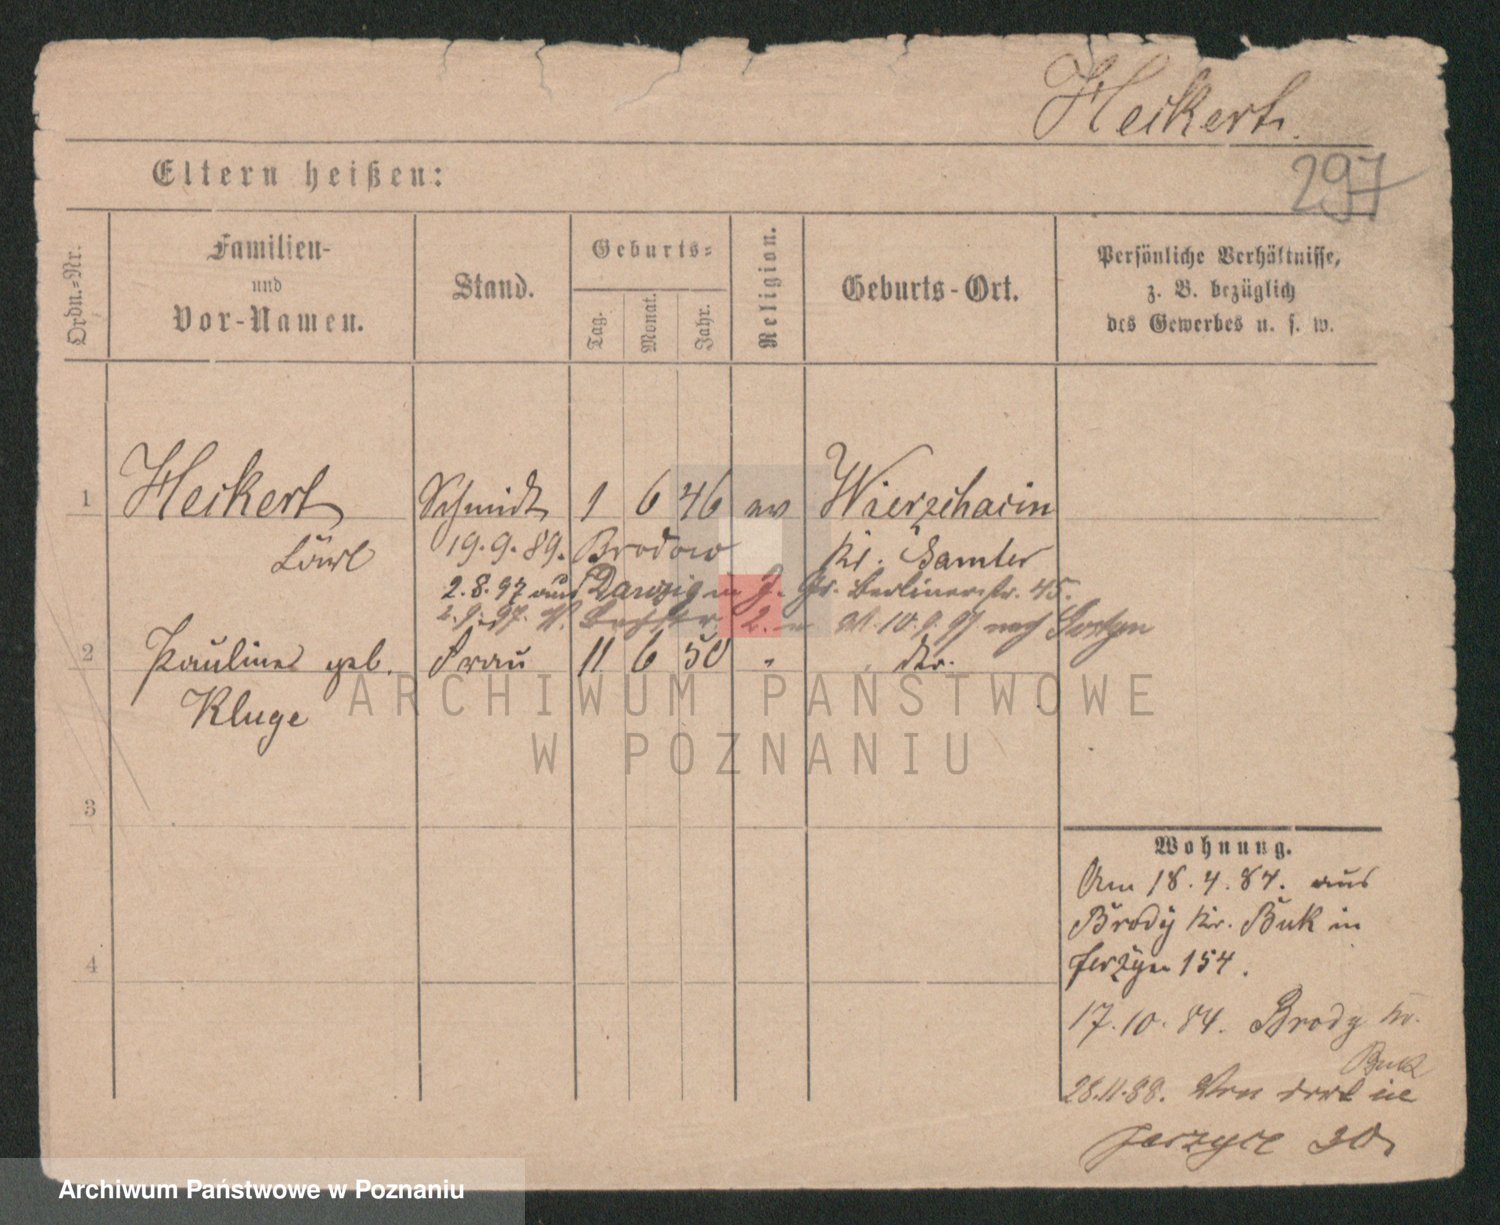 Heikert.
297
Eltern heißen:
Ordn.-Nr.
Familien-
und
Vor-Namen.
Stand.
Geburts-
Tag.
Monat.
Jahr.
Religion.
Geburts-Ort.
Persönliche Verhältnisse,
z. B. bezüglich
des Gewerbes u. s. w.
1 Heikert Schmidt 1 6 46 ev Wierzchacin
19.9.89. Brodow Kr. Samter
2.8.97 aus Danzig in J. Gr. Berlinerstr. 45.
2.9.97. 2. 10.9.97 nach Gostyn
2 Pauline geb. Frau 11 6 50 " dto.
Kluge
ARCHIWUM PAŃSTWOWE
W POZNANIU
3
4
Wohnung.
Am 18.4.84. aus
Brody Kr. Buk in
Jerzyce 154.
17.10.84. Brody Kr.
Buk
28.11.88. Von dort in
Jerzyce 30
Archiwum Państwowe w Poznaniu